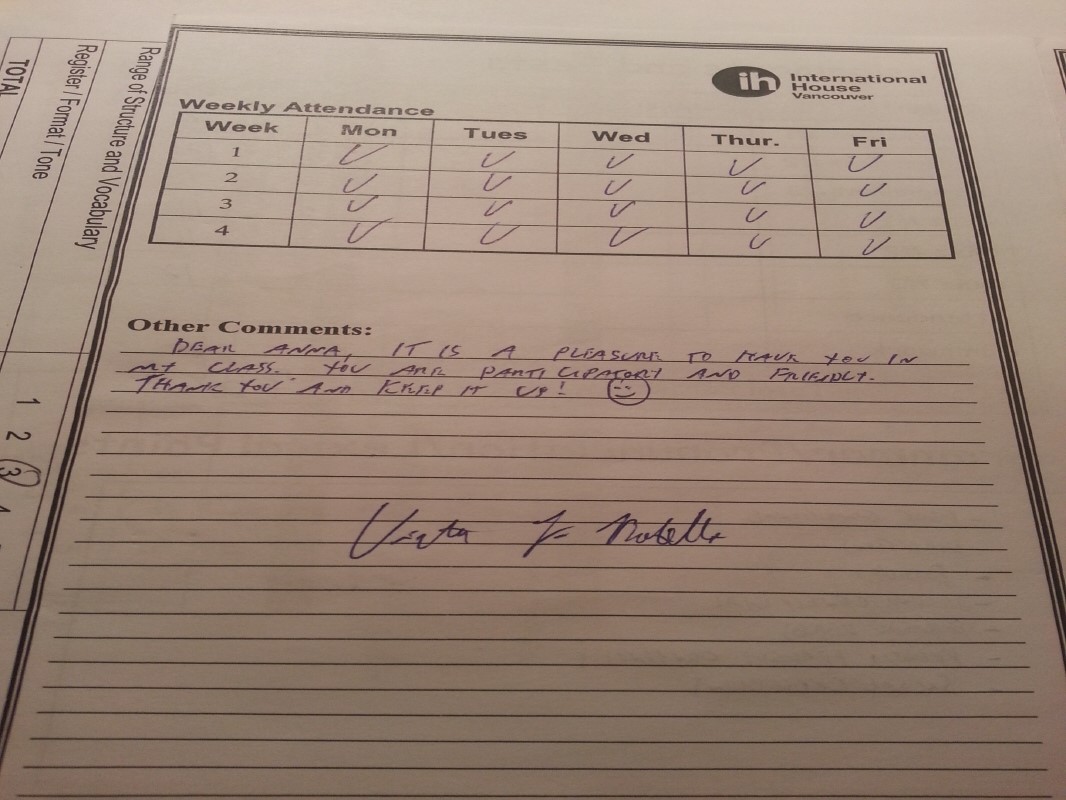 TOTAL
Register / Format / Tone
Range of Structure and Vocabulary
1 2 3
ih International
House
Vancouver
Weekly Attendance
Week Mon Tues Wed Thur. Fri
1
2
3
4
Other Comments:
DEAR ANNA, IT IS A PLEASURE TO HAVE YOU IN
MY CLASS. YOU ARE PARTICIPATORY AND FRIENDLY.
THANK YOU AND KEEP IT UP!